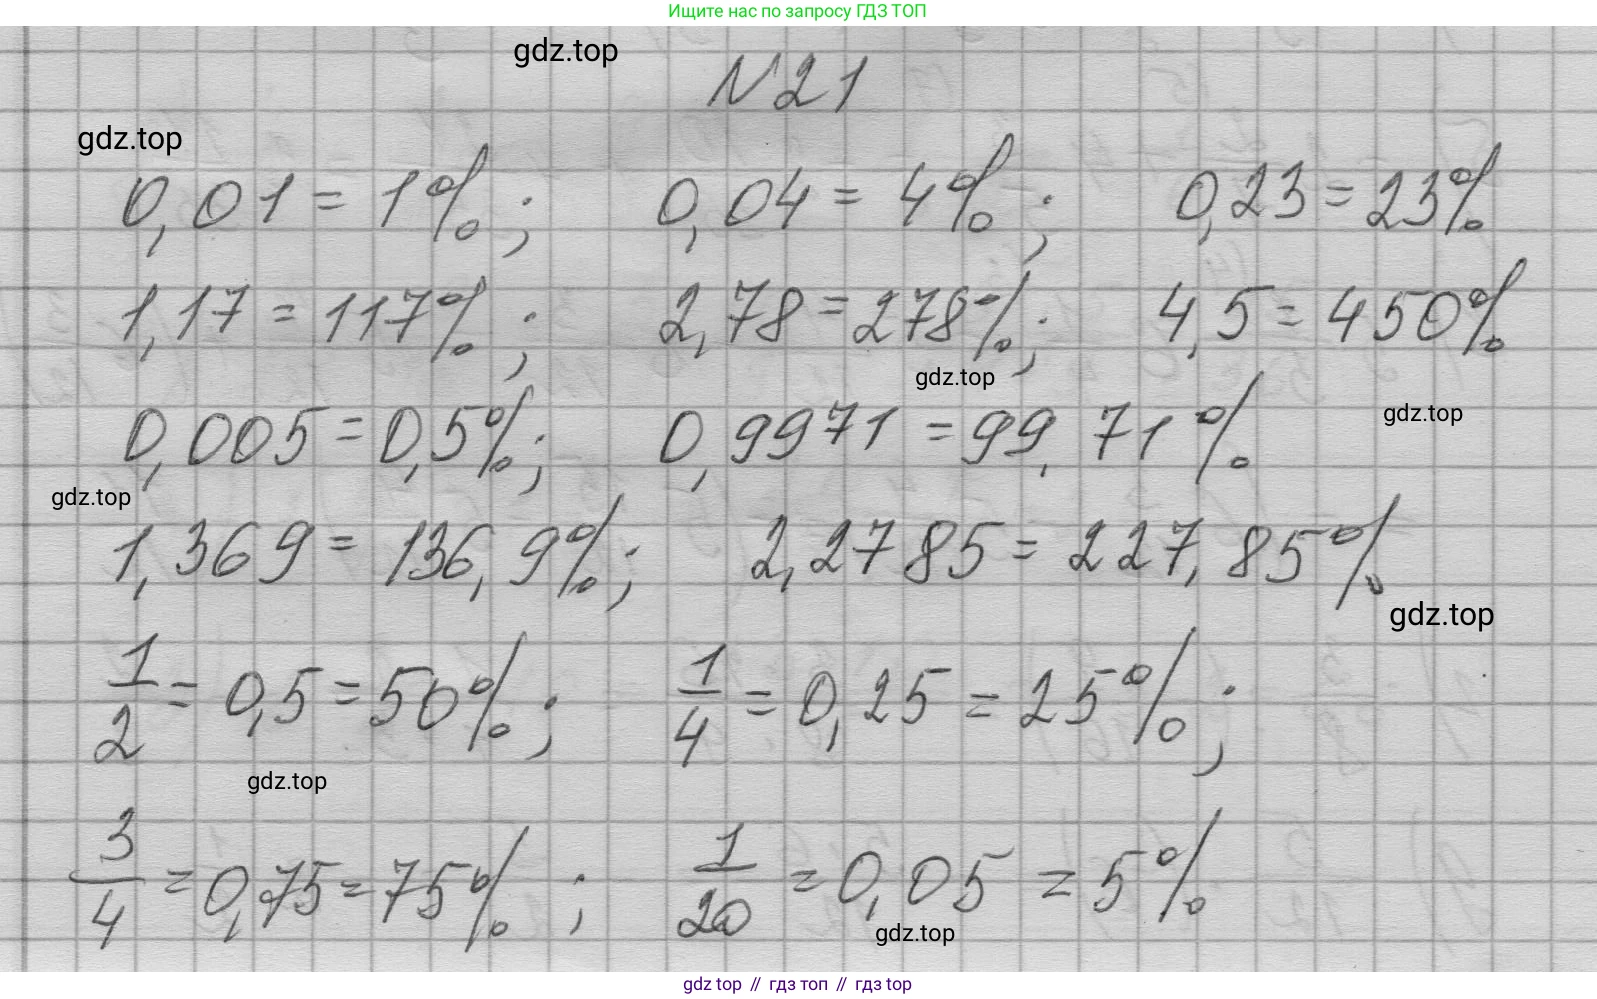 Ищите нас по запросу ГДЗ ТОП
gdz.top
N21
gdz.top
0,01 = 1%; 0,04 = 4%; 0,23 = 23%
1,17 = 117%; 2,78 = 278%; 4,5 = 450%
gdz.top
gdz.top
0,005 = 0,5%; 0,9971 = 99,71%
gdz.top
1,369 = 136,9%; 2,2785 = 227,85%
gdz.top
1/2 = 0,5 = 50%; 1/4 = 0,25 = 25%;
gdz.top
3/4 = 0,75 = 75%; 1/20 = 0,05 = 5%
gdz.top
gdz top // гдз топ // гдз top